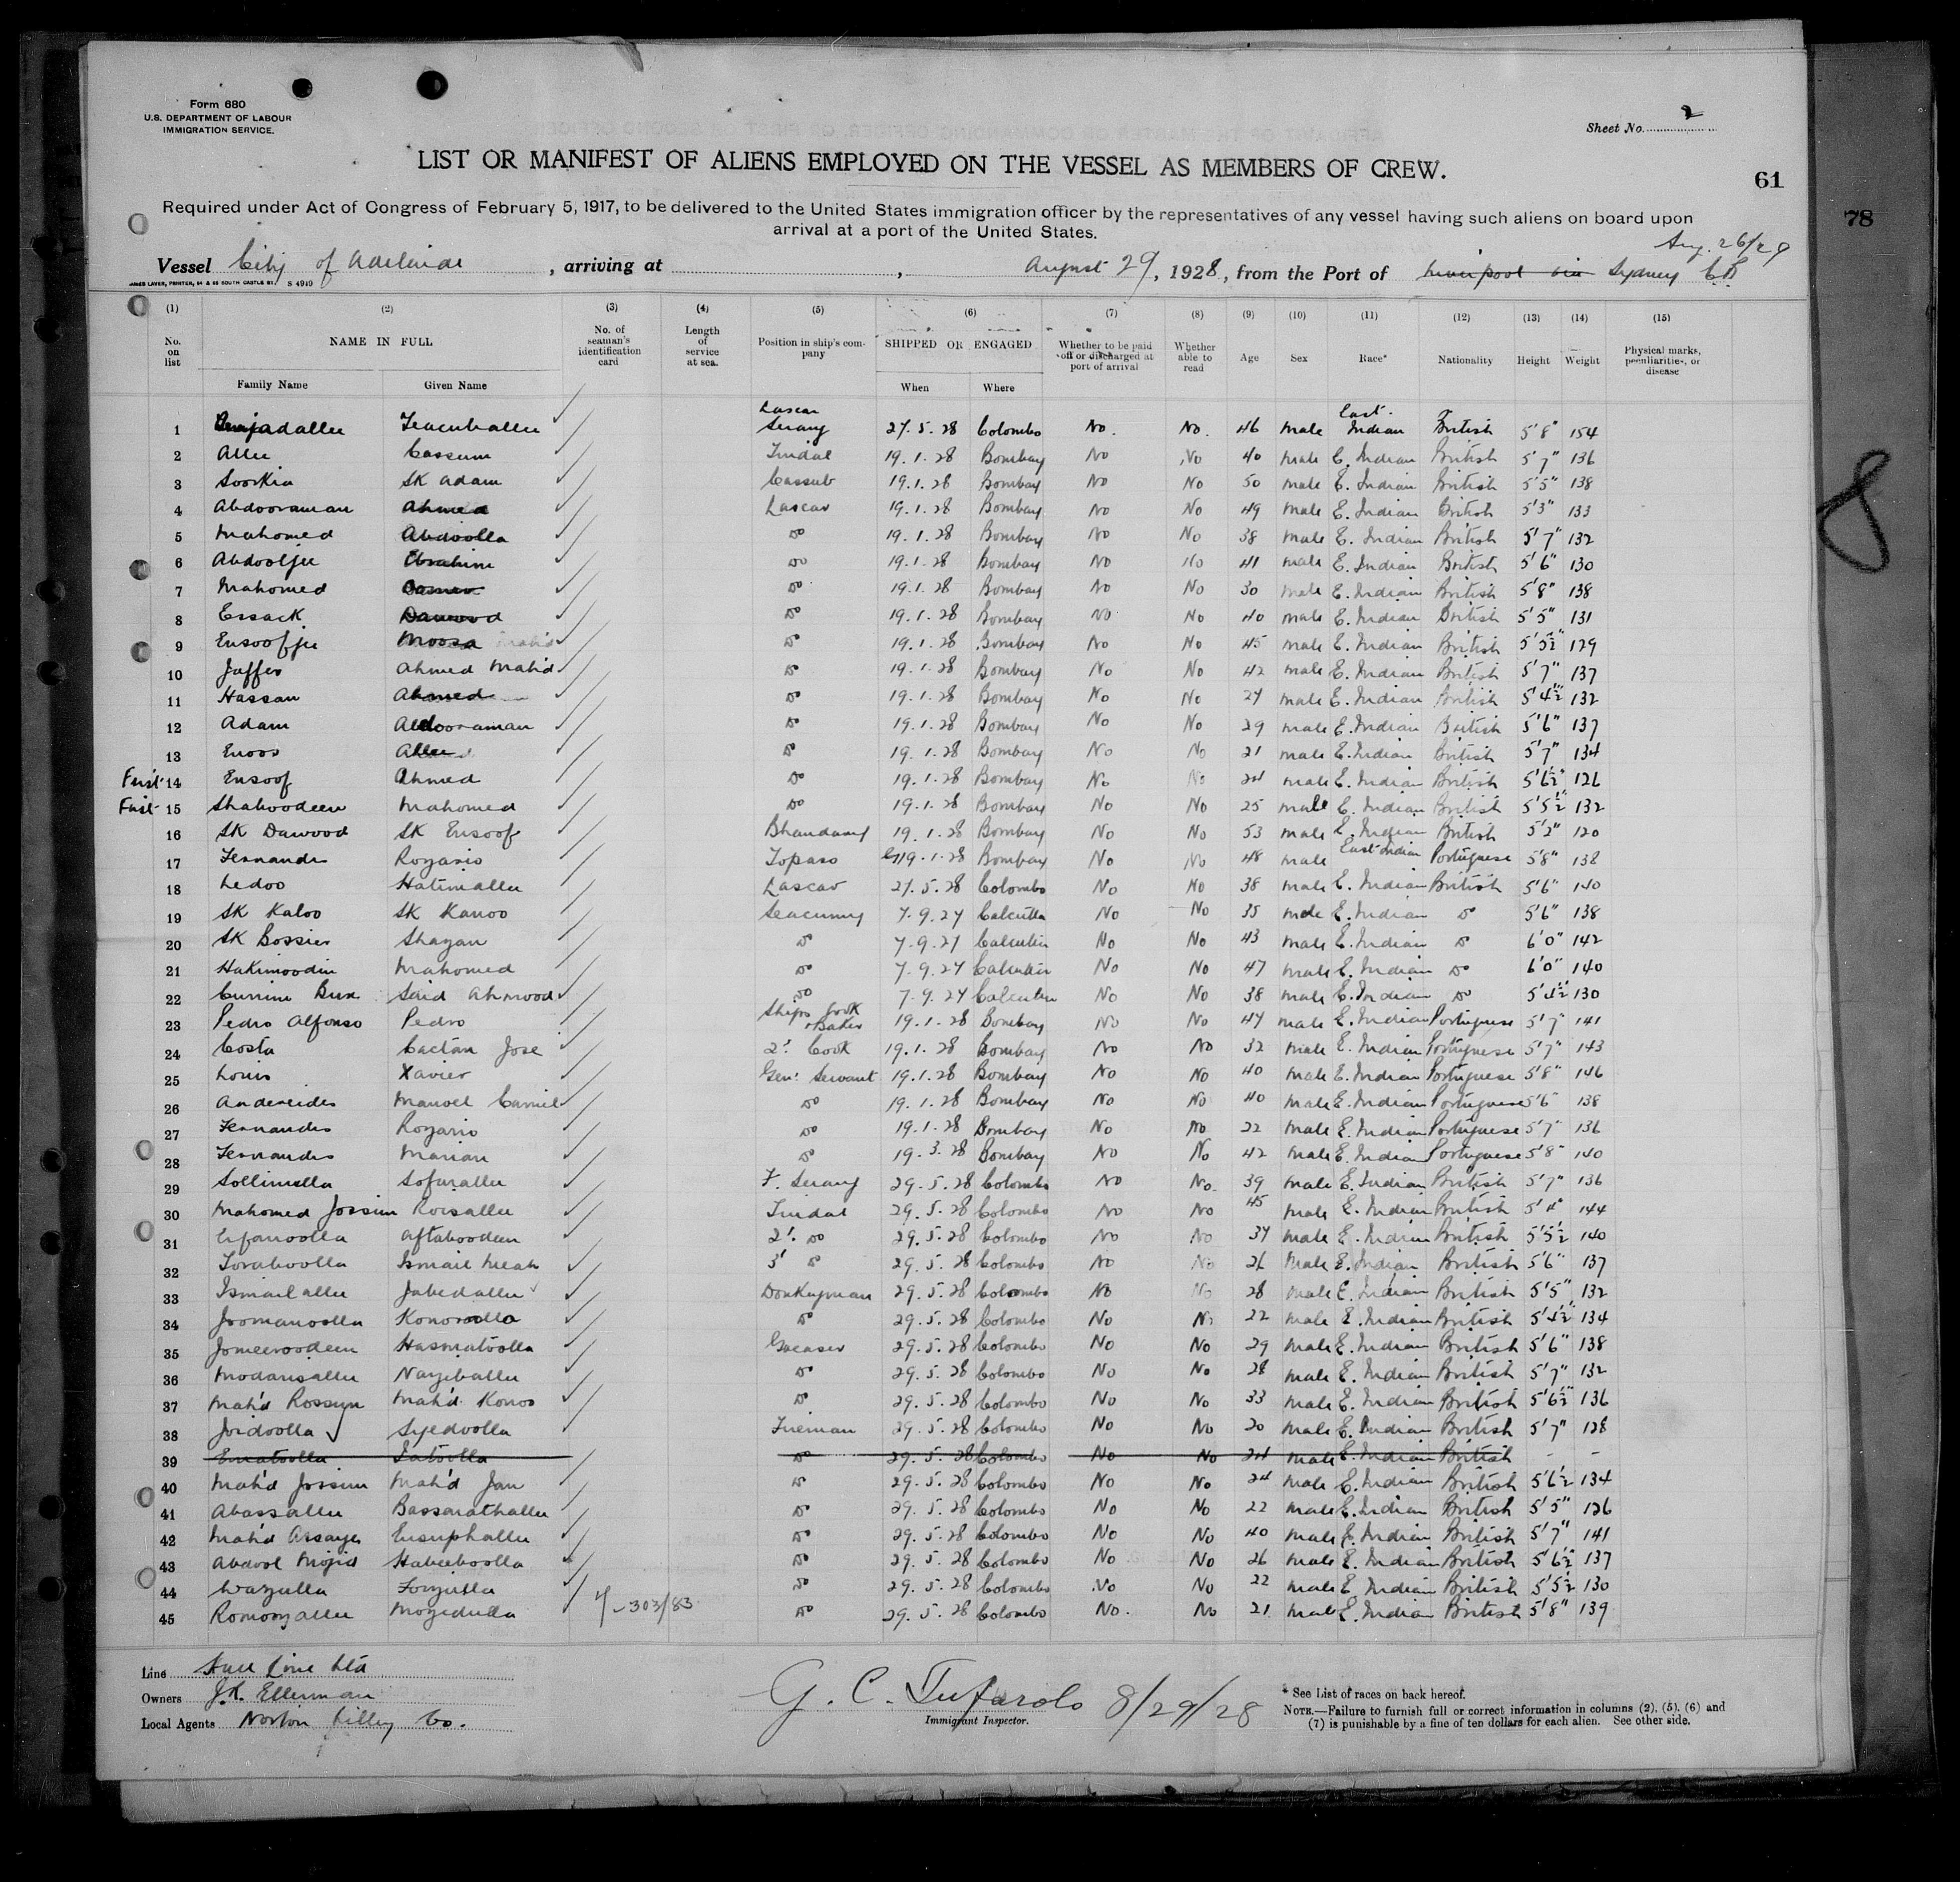 Form 680
U.S. DEPARTMENT OF LABOUR
IMMIGRATION SERVICE.
Sheet No. 2
LIST OR MANIFEST OF ALIENS EMPLOYED ON THE VESSEL AS MEMBERS OF CREW.
61
78
Required under Act of Congress of February 5, 1917, to be delivered to the United States immigration officer by the representatives of any vessel having such aliens on board upon
arrival at a port of the United States.
Aug. 26/28
Vessel City of Adelaide, arriving at , August 29, 1928, from the Port of Liverpool via Sydney
JAMES LAVER, PRINTER, SOUTH CASTLE ST. S 4949
(1) (2) (3) (4) (5) (6) (7) (8) (9) (10) (11) (12) (13) (14) (15)
No. on list NAME IN FULL No. of seaman's identification card Length of service at sea. Position in ship's company SHIPPED OR ENGAGED Whether to be paid off or discharged at port of arrival Whether able to read Age Sex Race* Nationality Height Weight Physical marks, peculiarities, or disease
Family Name Given Name When Where
1 Lascar Serang 27.5.28 Colombo No. No. 46 Male East Indian British 5'8" 154
2 Allee Cassum Tindal 19.1.28 Bombay No No 40 Male E. Indian British 5'7" 136
3 Soorkia SK Adam Cassub 19.1.28 Bombay No No 50 Male E. Indian British 5'5" 138
4 Abdooraman Ahmed Lascar 19.1.28 Bombay No No 49 Male E. Indian British 5'3" 133
5 Mahomed Abdoolla Do 19.1.28 Bombay No No 38 Male E. Indian British 5'7" 132
6 Abdooljee Ebrahim Do 19.1.28 Bombay No No 41 Male E. Indian British 5'6" 130
7 Mahomed Do 19.1.28 Bombay No No 30 Male E. Indian British 5'8" 138
8 Essack Dawood Do 19.1.28 Bombay No No 40 Male E. Indian British 5'5" 131
9 Ensoofjee Moosa Do 19.1.28 Bombay No No 45 Male E. Indian British 5'5½" 129
10 Jaffer Ahmed Mah'd Do 19.1.28 Bombay No No 42 Male E. Indian British 5'7" 137
11 Hassan Ahmed Do 19.1.28 Bombay No No 27 Male E. Indian British 5'4½" 132
12 Adam Abdooraman Do 19.1.28 Bombay No No 29 Male E. Indian British 5'6" 137
13 Enoos Allee Do 19.1.28 Bombay No No 21 Male E. Indian British 5'7" 134
First 14 Ensoof Ahmed Do 19.1.28 Bombay No No 24 Male E. Indian British 5'6½" 126
First 15 Shaboodeen Mahomed Do 19.1.28 Bombay No No 25 Male E. Indian British 5'5½" 132
16 SK Dawood SK Ensoof Bhandary 19.1.28 Bombay No No 53 Male E. Indian British 5'2" 120
17 Fernandes Rozario Topass 19.1.28 Bombay No No 48 Male East Indian Portuguese 5'8" 138
18 Ledoo Hatimallee Lascar 27.5.28 Colombo No No 38 Male E. Indian British 5'6" 140
19 SK Kaloo SK Kanoo Seacunny 7.9.27 Calcutta No No 35 Male E. Indian Do 5'6" 138
20 SK Bossier Shazan Do 7.9.27 Calcutta No No 43 Male E. Indian Do 6'0" 142
21 Hakimoodin Mahomed Do 7.9.27 Calcutta No No 47 Male E. Indian Do 6'0" 140
22 Currim Bux Said Ahmood Do 7.9.27 Calcutta No No 38 Male E. Indian Do 5'4½" 130
23 Pedro Alfonso Pedro Ships Cook & Baker 19.1.28 Bombay No No 47 Male E. Indian Portuguese 5'7" 141
24 Costa Caetan Jose 2' Cook 19.1.28 Bombay No No 32 Male E. Indian Portuguese 5'7" 143
25 Louis Xavier Gen' Servant 19.1.28 Bombay No No 40 Male E. Indian Portuguese 5'8" 146
26 Manoel Camiel Do 19.1.28 Bombay No No 40 Male E. Indian Portuguese 5'6" 138
27 Fernandes Rozario Do 19.1.28 Bombay No No 22 Male E. Indian Portuguese 5'7" 136
28 Fernandes Marian Do 19.3.28 Bombay No No 42 Male E. Indian Portuguese 5'8" 140
29 Sollimulla Sofurallee F. Serang 29.5.28 Colombo No No 39 Male E. Indian British 5'7" 136
30 Mahomed Jossim Roisallee Tindal 29.5.28 Colombo No No 45 Male E. Indian British 5'4" 144
31 Aftaboodeen 2' Do 29.5.28 Colombo No No 37 Male E. Indian British 5'5½ 140
32 Toraboolla Ismail Meah 3' Do 29.5.28 Colombo No No 26 Male E. Indian British 5'6" 137
33 Ismail allee Jabedallee Donkeyman 29.5.28 Colombo No No 28 Male E. Indian British 5'5" 132
34 Joomanoolla Konoroolla Do 29.5.28 Colombo No No 22 Male E. Indian British 5'4½" 134
35 Jomeeroodeen Hasmatoolla Greaser 29.5.28 Colombo No No 29 Male E. Indian British 5'6" 138
36 Modarisallee Nazeballee Do 29.5.28 Colombo No No 28 Male E. Indian British 5'7" 132
37 Mah'd Rossun Mah'd Konoo Do 29.5.28 Colombo No No 33 Male E. Indian British 5'6½" 136
38 Joidoolla Syedoolla Fireman 29.5.28 Colombo No No 20 Male E. Indian British 5'7" 128
39 Ematoolla Do 29.5.28 Colombo No No 24 Male E. Indian British - -
40 Mah'd Jossim Mah'd Jan Do 29.5.28 Colombo No No 24 Male E. Indian British 5'6½ 134
41 Abassallee Bassarathallee Do 29.5.28 Colombo No No 22 Male E. Indian British 5'5" 126
42 Mah'd Assayer Eusuphallee Do 29.5.28 Colombo No No 40 Male E. Indian British 5'7" 141
43 Abdool Mojid Habeeboolla Do 29.5.28 Colombo No No 26 Male E. Indian British 5'6½" 137
44 Wazulla Forzulla Do 29.5.28 Colombo No No 22 Male E. Indian British 5'5½ 130
45 Romonzallee Mozedulla 4-303/83 Do 29.5.28 Colombo No. No 21 Male E. Indian British 5'8" 139
Line Hall Line Ltd
Owners J.R. Ellerman
Local Agents Norton Lilley Co.
G. C. Tufarolo 8/29/28
Immigrant Inspector.
* See List of races on back hereof.
NOTE.—Failure to furnish full or correct information in columns (2), (5), (6) and
(7) is punishable by a fine of ten dollars for each alien. See other side.
8